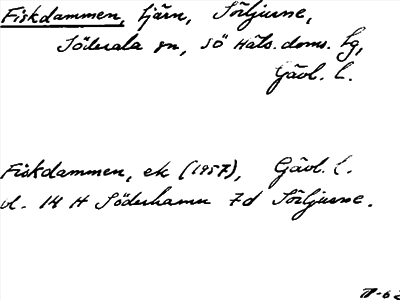 Fiskdammen, tjärn, Sörljusne,
Söderala sn, SÖ Häls. doms. lg,
Gävl. l.
Fiskdammen, ek (1957), Gävl. l.
vl. 14 H Söderhamn 7d Sörljusne.